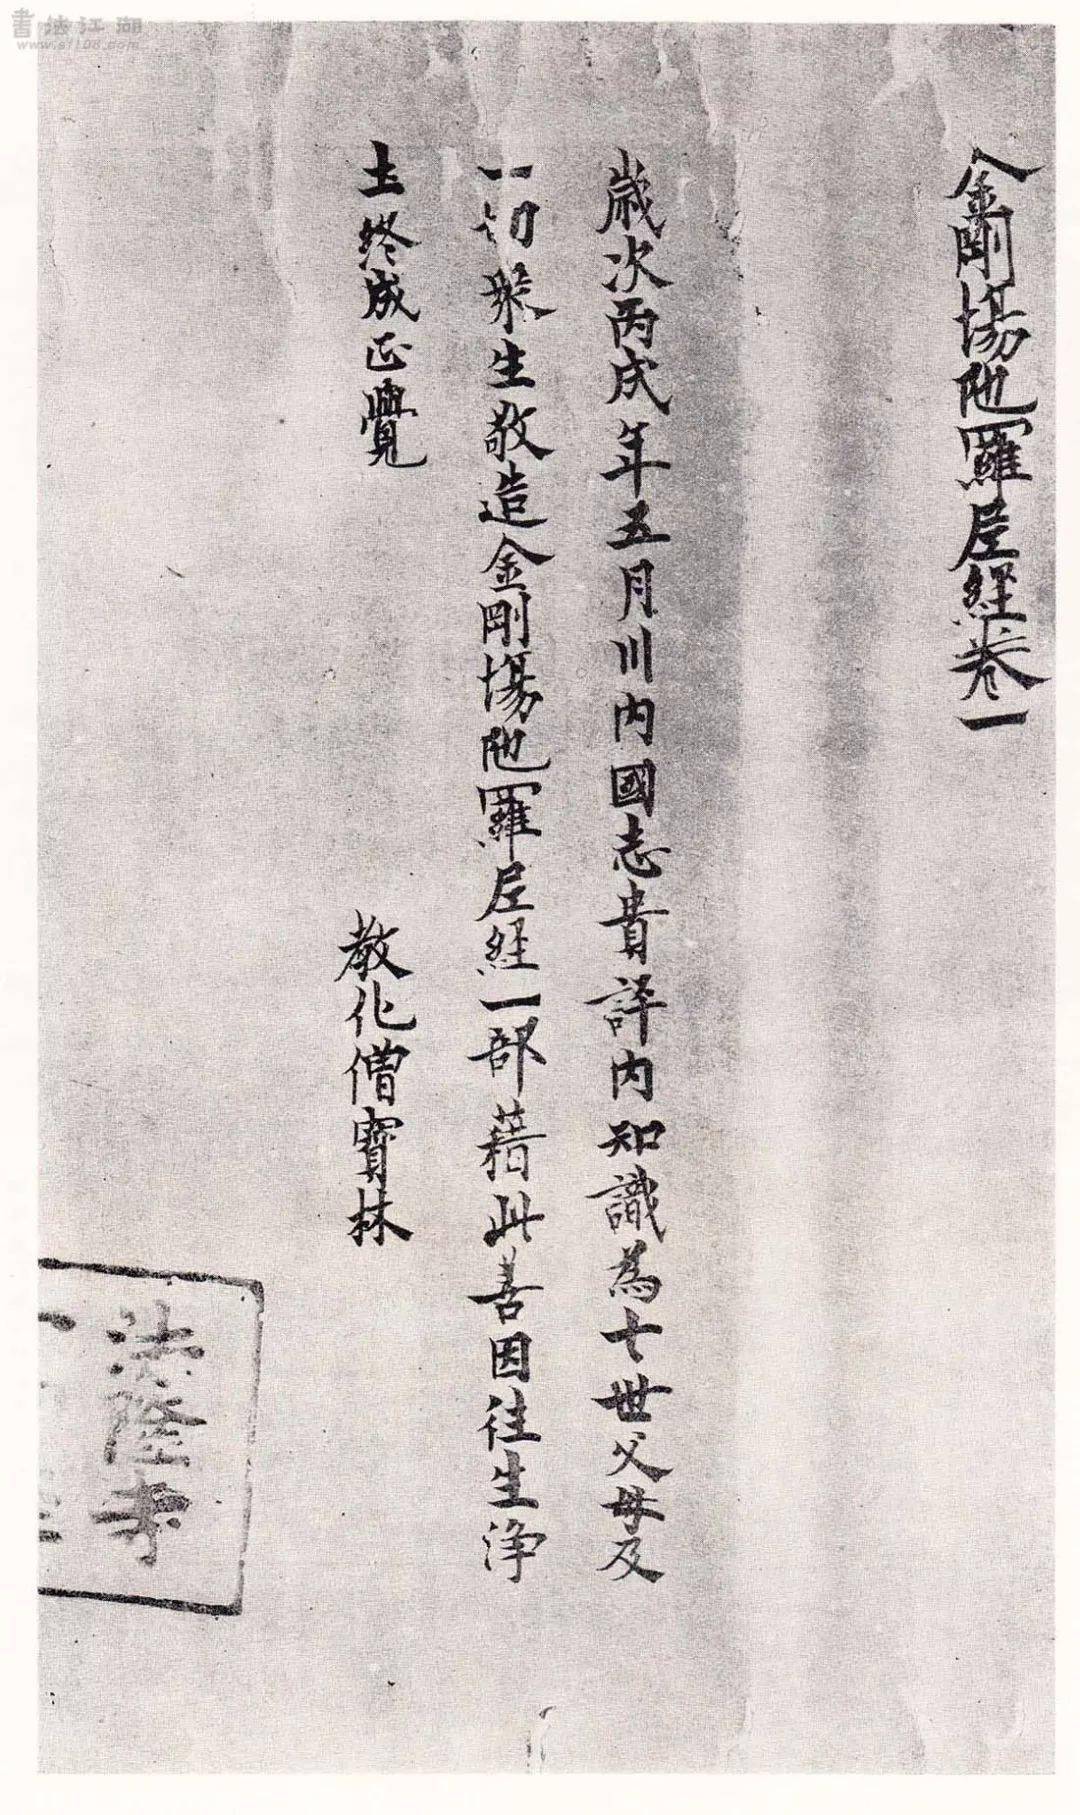 金剛場陁羅尼經卷一
歳次丙戌年五月川内國志貴評内知識為七世父母及
一切衆生敬造金剛場陁羅尼經一部藉此善因往生浄
土終成正覺
教化僧寶林
法隆寺
一
書法江湖
www.sf108.com